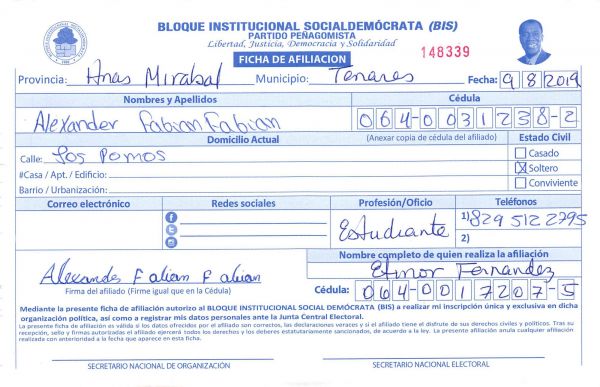 BLOQUE INSTITUCIONAL SOCIALDEMÓCRATA (BIS)
PARTIDO PEÑAGOMISTA
Libertad, Justicia, Democracia y Solidaridad
FICHA DE AFILIACION
148339
Provincia: Hnas Mirabal Municipio: Tenares Fecha: 9 8 2019
Nombres y Apellidos Cédula
Alexander Fabian Fabian 064-0031238-2
Domicilio Actual (Anexar copia de cédula del afiliado) Estado Civil
Calle: Los Pomos Casado
#Casa / Apt. / Edificio: X Soltero
Barrio / Urbanización: Conviviente
Correo electrónico Redes sociales Profesión/Oficio Teléfonos
Estudiante 1) 829 512 2795
2)
Nombre completo de quien realiza la afiliación
Alexander Fabian Fabian Fernandez
Firma del afiliado (Firme igual que en la Cédula) Cédula: 064-0017207-5
Mediante la presente ficha de afiliación autorizo al BLOQUE INSTITUCIONAL SOCIAL DEMÓCRATA (BIS) a realizar mi inscripción única y exclusiva en dicha
organización política, así como a registrar mis datos personales ante la Junta Central Electoral.
La presente ficha de afiliación es válida si los datos ofrecidos por el afiliado son correctos, las declaraciones veraces y si el afiliado tiene el disfrute de sus derechos civiles y políticos. Tras su
recepción, sello y firmas autorizadas el afiliado ejercerá todos los derechos y los deberes estatutariamente sancionados, de acuerdo a la ley. La presente afiliación anula cualquier afiliación
realizada con anterioridad a la fecha que aparece en esta ficha.
SECRETARIO NACIONAL DE ORGANIZACIÓN SECRETARIO NACIONAL ELECTORAL